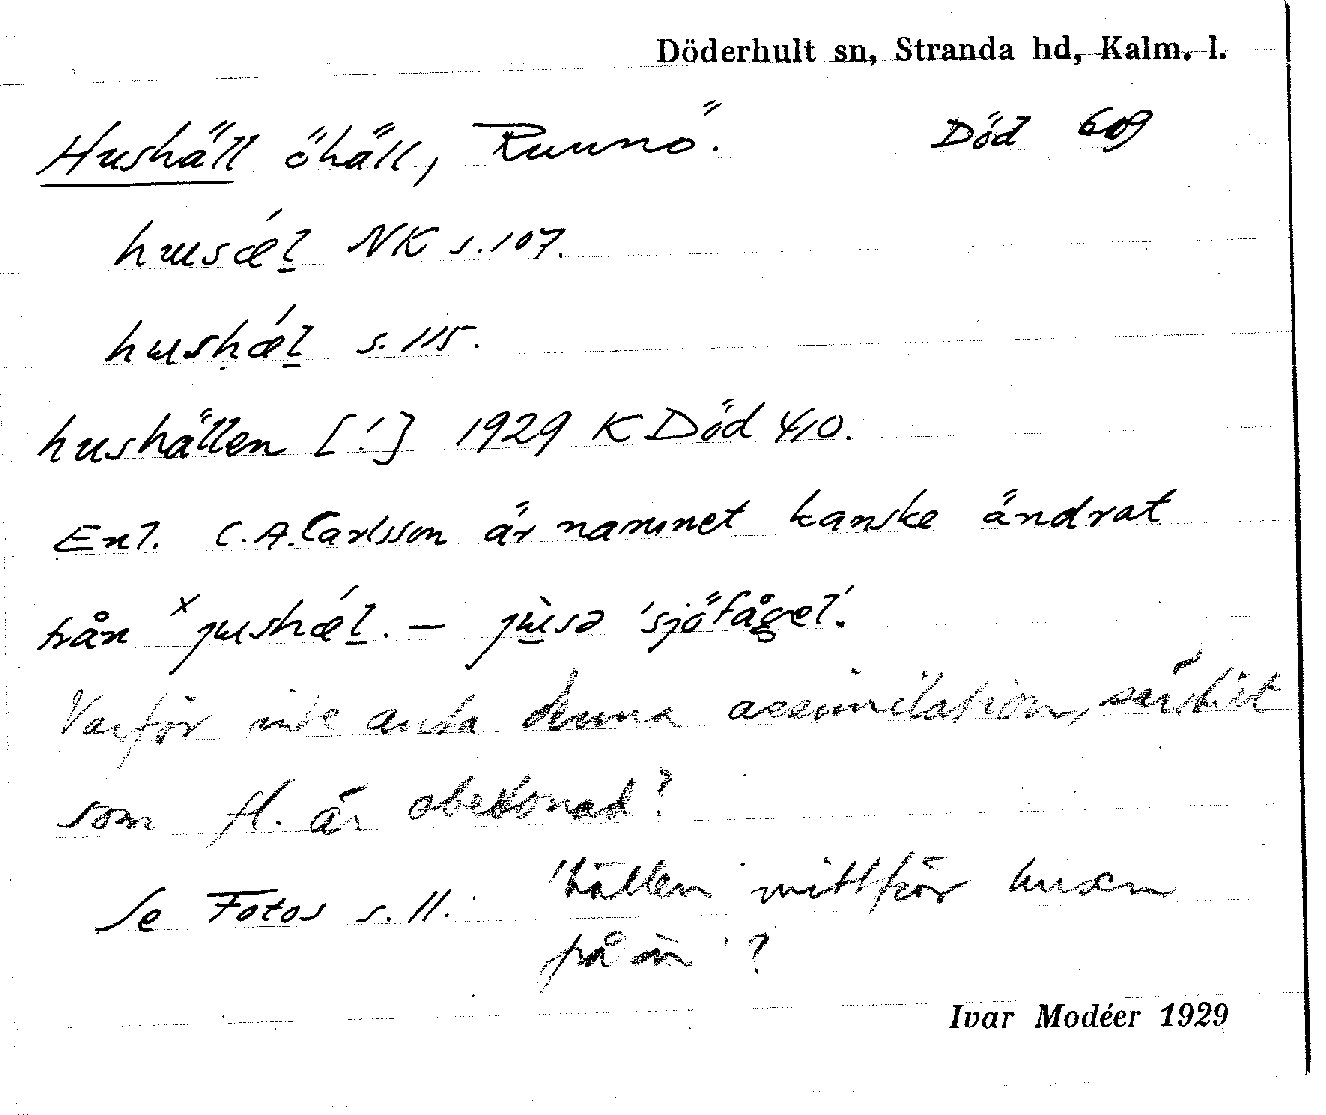 Döderhult sn, Stranda hd, Kalm. l.
Hushäll öhäll, Runnö. Död 609
husǽl̲ NK s. 107.
hushǽl̲ s. 115.
hushällen [!] 1929 K Död 4,0.
Enl. C.A. Carlsson är namnet kanske ändrat
från ˣjushǽl̲. — jùsə 'sjöfågel'.
Varför inte anta denna assimilation, särskilt
som fl. är obetonad?
Se Fotos s. 11. 'hällen mittför husen
på ön'?
Ivar Modéer 1929